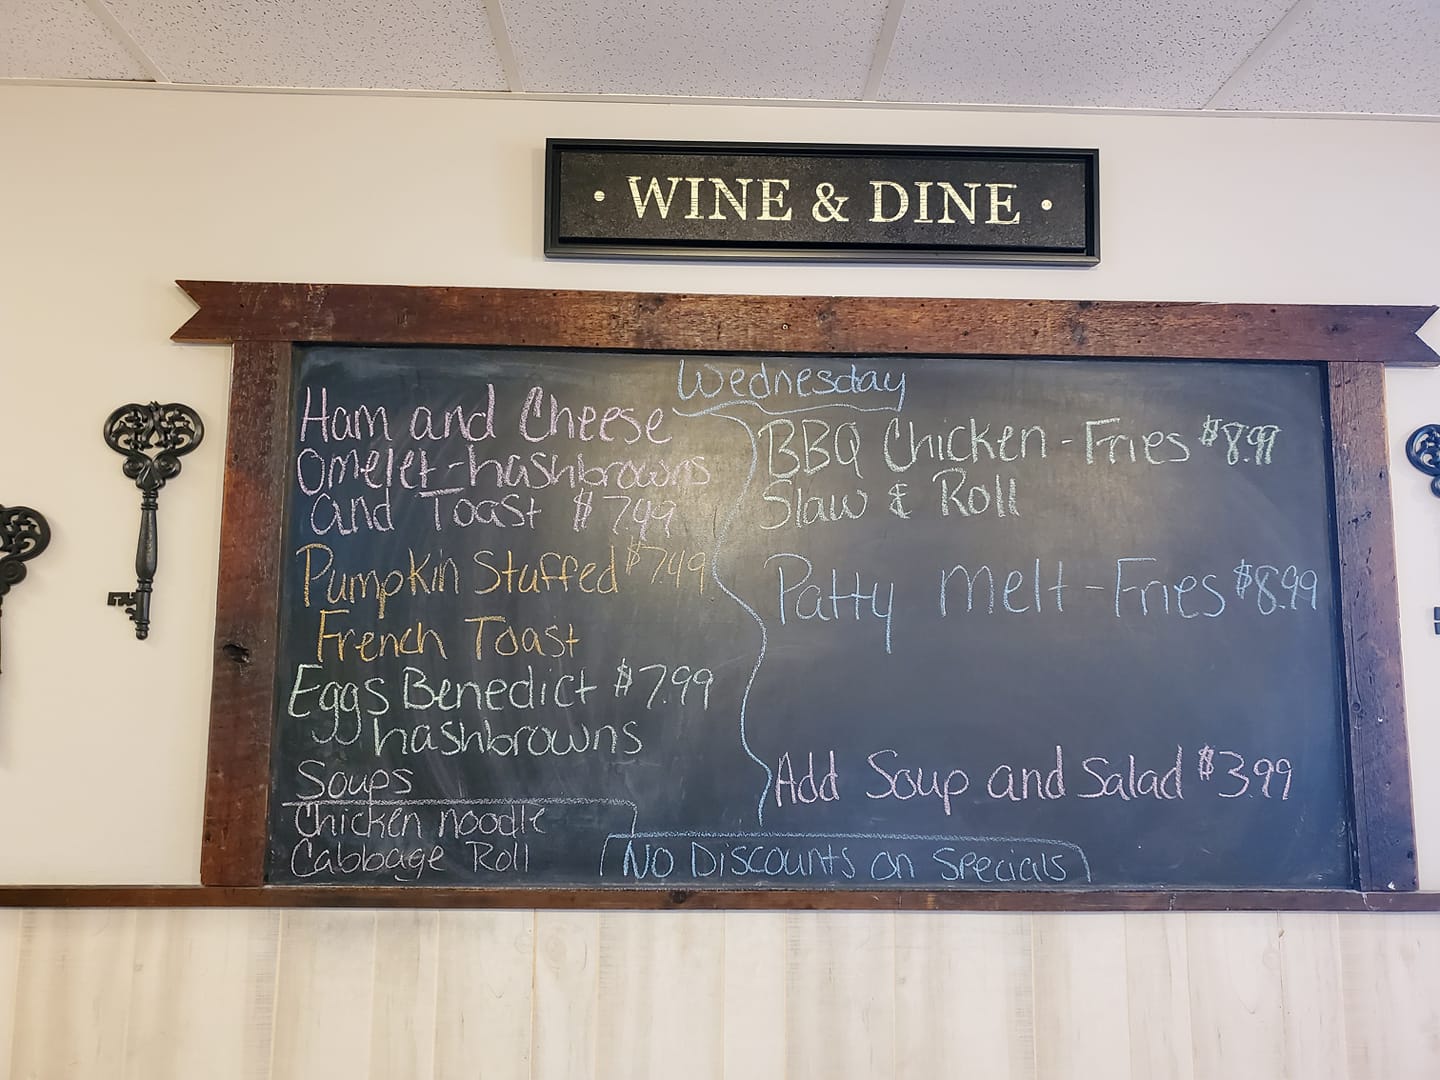 · WINE & DINE ·
Wednesday
Ham and Cheese
Omelet-hashbrowns
and Toast $7.99
Pumpkin Stuffed $7.49
French Toast
Eggs Benedict $7.99
hashbrowns
Soups
Chicken noodle
Cabbage Roll
BBQ Chicken - Fries $8.99
Slaw & Roll
Patty Melt - Fries $8.99
Add Soup and Salad $3.99
No Discounts on Specials